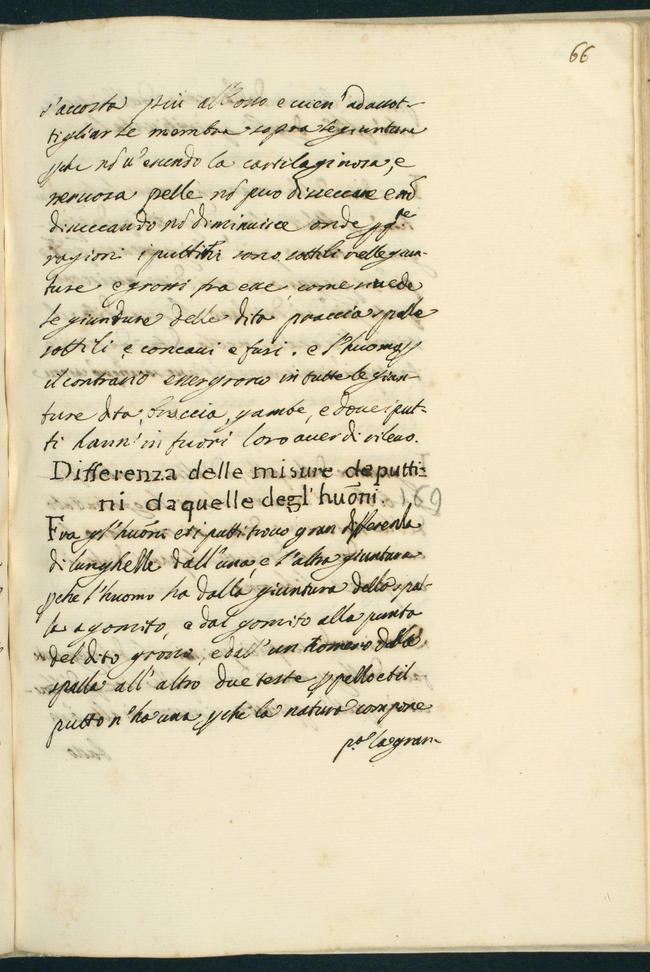 66
s'accosta piu all'osso e vien' ad assot-
tigliar le membra sopra le giunture
pche nō u'essendo la cartilaginosa, e
neruosa pelle nō puo diseccare e nō
diseccando nō diminuisce onde p q.te
ragioni i puttini sono sottili nelle giun-
ture e grossi fra esse, come si uede
le giunture delle dita braccia, spalle
sottili, e concaui e fusi. e l'huomo p
il contrario esser grosso in tutte le giun-
ture dita, braccia, gambe, e doue i put-
ti hann' in fuori loro auer di rileuo.
Differenza delle misure de putti-
ni da quelle degl' huōni.
169
Fra gl'huōni et i putti trouo gran differenza
di lunghezze dall'una e l'altra giuntura
pche l'huomo ha dalla giuntura delle spal-
le a gomito, e dal gomito alla punta
del dito grosso, e dall'un homero della
spalla all'altro due teste p pezzo et il
putto n'ha una pche la natura compone
p.a la gran-